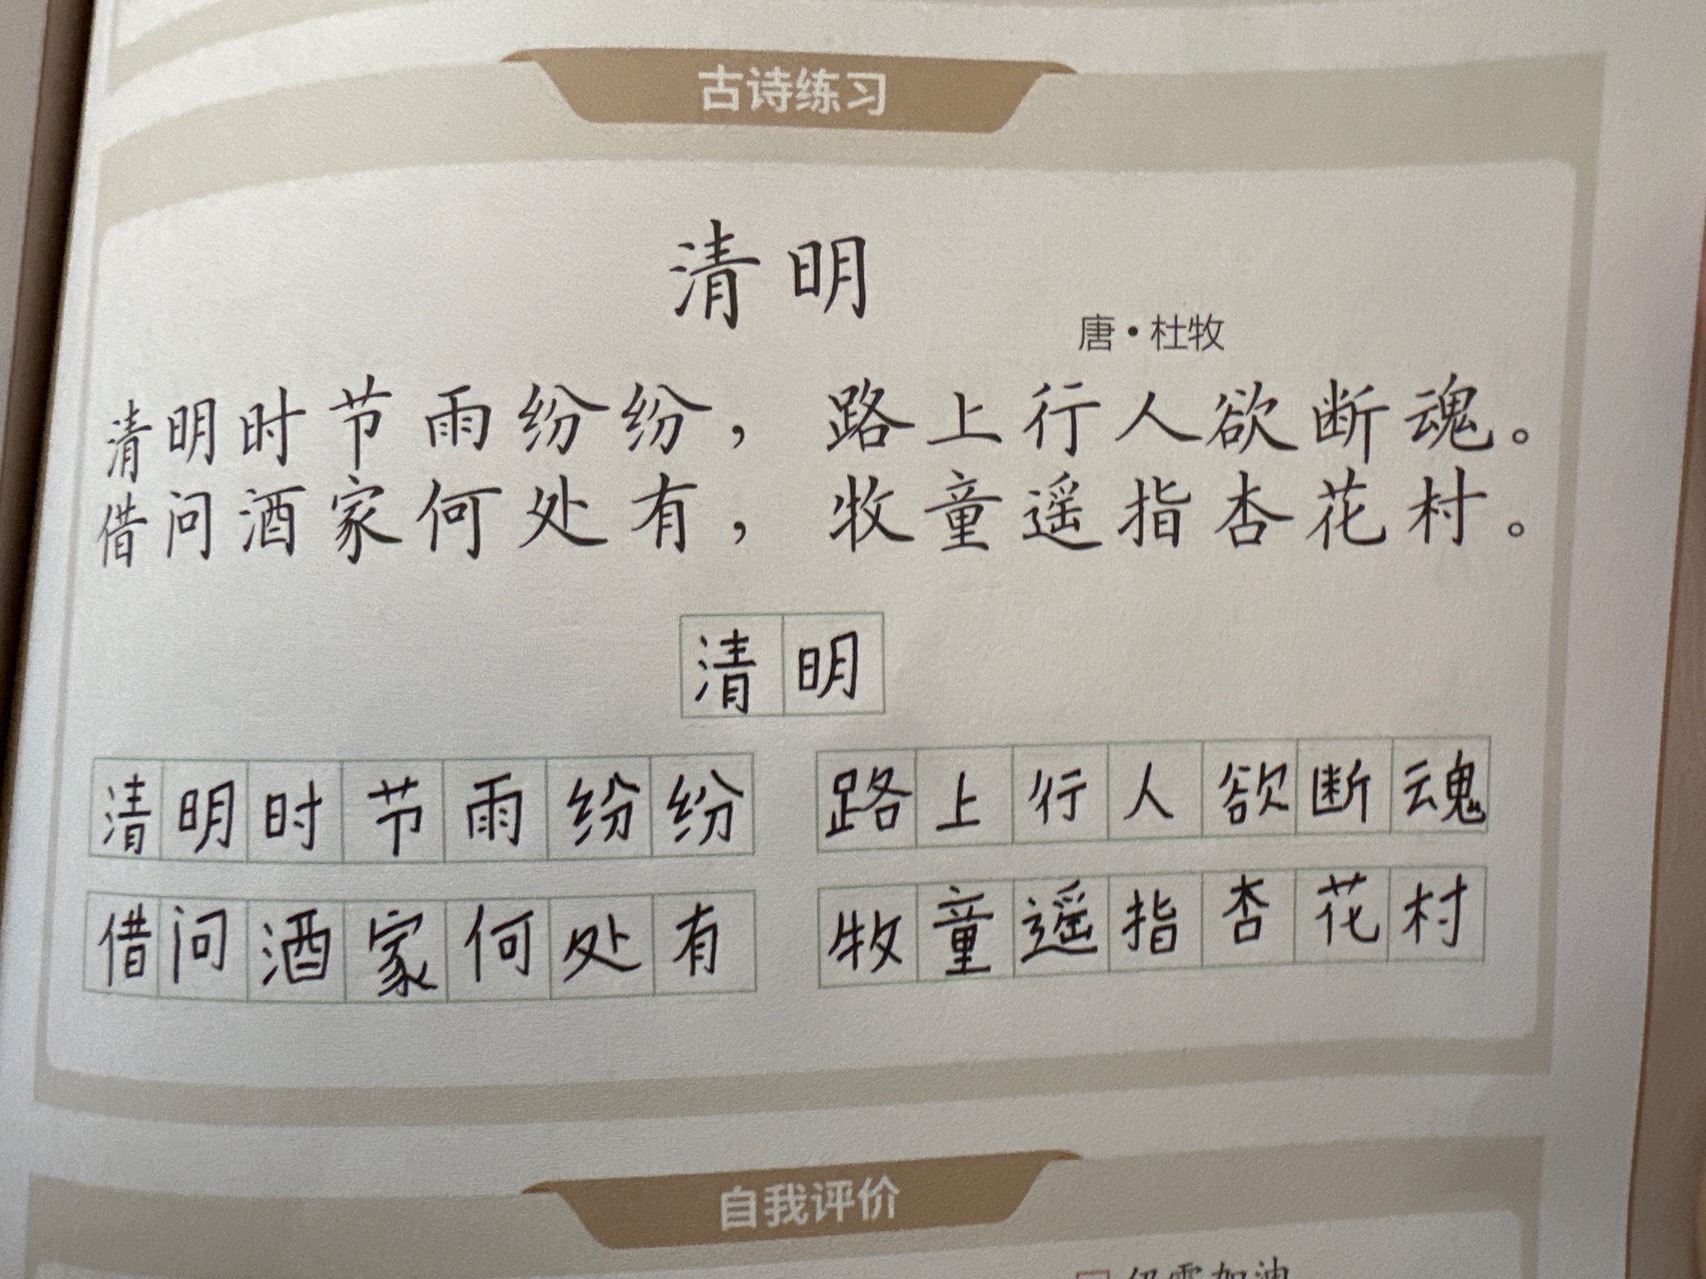 古诗练习
清明
唐·杜牧
清明时节雨纷纷，路上行人欲断魂。
借问酒家何处有，牧童遥指杏花村。
清明
清明时节雨纷纷 路上行人欲断魂
借问酒家何处有 牧童遥指杏花村
自我评价
仍需加油